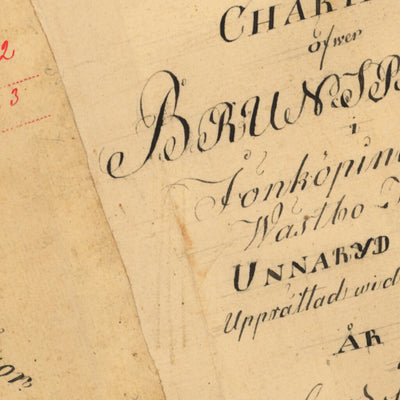 2
3
CHART
öfwer
BRUNSB
i
Jönköping
Wästbo
UNNARYD
Upprättad wid
ÅR